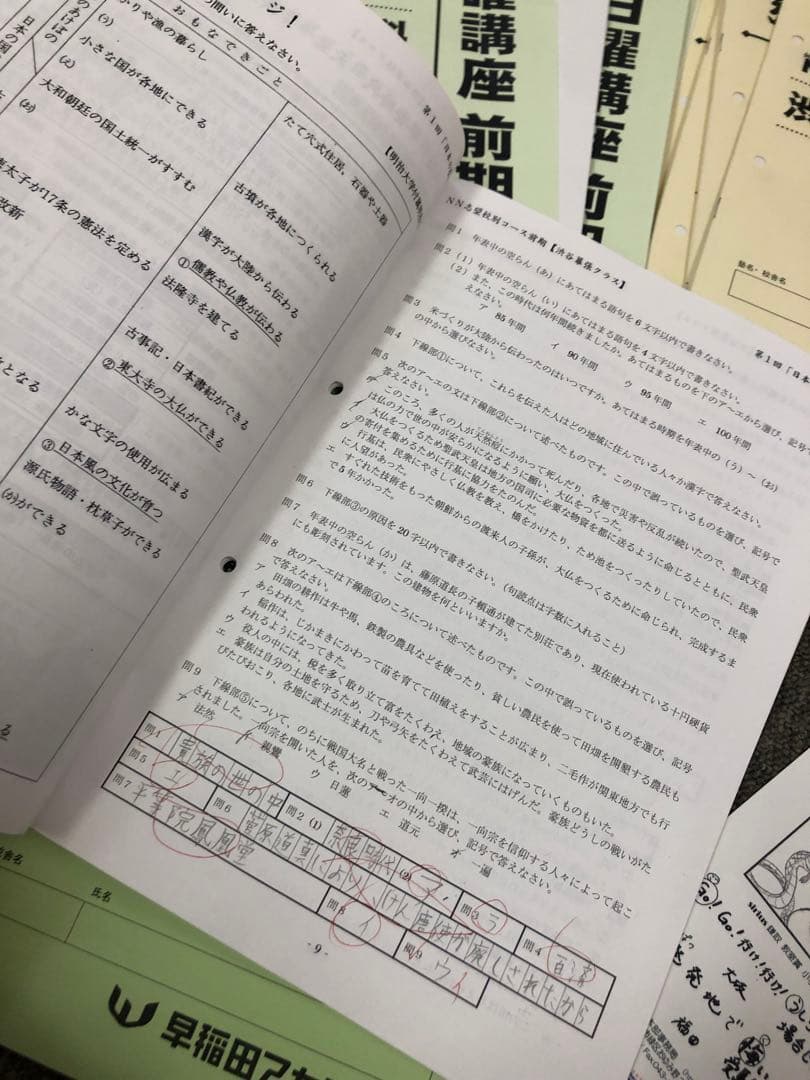 ジ！
の問いに答えなさい。
おもなできごと
りや漁の暮らし
たて穴式住居、石器や土器
(う)
小さな国が各地にできる
(え)
古墳が各地につくられる
大和朝廷の国土統一がすすむ
(お)
漢字が大陸から伝わる
①儒教や仏教が伝わる
太子が17条の憲法を定める
法隆寺を建てる
改新
古事記・日本書紀ができる
②東大寺の大仏ができる
となる
かな文字の使用が広まる
③日本風の文化が育つ
源氏物語・枕草子ができる
(か)ができる
NN志望校別コース前期【渋谷幕張クラス】
第1回「日本
問1 年表中の空らん（あ）にあてはまる語句を6文字以内で書きなさい。
問2（1）年表中の空らん（い）にあてはまる語句を4文字以内で書きなさい。
（2）また、この時代は何年間続きましたか。あてはまるものを下のア〜エから選び、記号で
えなさい。
ア 85年間 イ 90年間 ウ 95年間 エ 100年間
問3 米づくりが大陸から伝わったのはいつですか。あてはまる時期を年表中の（う）〜（お）
の中から選びなさい。
問4 下線部①について、これらを伝えた人はどの地域に住んでいる人々か漢字で答えなさい。
問5 次のア〜エの文は下線部②について述べたものです。この中で誤っているものを選び、記号で
答えなさい。
ア このころ、多くの人が天然痘にかかって死んだり、各地で災害や反乱が続いたので、聖武天皇
は仏の力で世の中が安らかになるように願い、大仏をつくった。
イ 大仏をつくるため聖武天皇は地方の国司に必要な物資を都に送るように命じるとともに、民衆
の寄付を集めるために行基に協力をたのんだ。
ウ 行基は、民衆にやさしく仏教を教え、橋をかけたり、ため池をつくったりしていたので、民衆
に人望があった。
エ すぐれた技術をもった朝鮮からの渡来人の子孫が、大仏をつくるために命じられ、完成するま
で5年かかった。
問6 下線部③の原因を20字以内で書きなさい。（句読点は字数に入れること）
問7 年表中の空らん（か）は、藤原道長の子頼通が建てた別荘であり、現在使われている十円硬貨
にも彫刻されています。この建物を何といいますか。
問8 次のア〜エは下線部④のころについて述べたものです。この中で誤っているものを選び、記号
で答えなさい。
ア 田畑の耕作は牛や馬、鉄製の農具などを使ったり、貧しい農民を使って田畑を開墾する農民も
あらわれた。
イ 稲作は、じかまきにかわって苗を育てて田植えをすることが広まり、二毛作が関東地方でも行
われるようになってきた。
ウ 役人の中には、税を多く取り立て富をたくわえ、地域の豪族になっていくものもいた。
エ 豪族は自分の土地を守るため、刀や弓矢をたくわえて武芸にはげんだ。豪族どうしの戦いがた
びたびおこり、各地に武士が生まれた。
問9 下線部⑤について、のちに戦国大名と戦った一向一揆は、一向宗を信仰する人々によって起こ
されました。一向宗を開いた人を、次のア〜オの中から選び、記号で答えなさい。
ア 法然 イ 親鸞 ウ 日蓮 エ 道元 オ 一遍
問1 貴族の世の中 問2（1） 奈良時代 (2) ア 問3 う 問4 百済
問5 エ 問6 菅原道真により、けん唐使が廃しされたから
問7 平等院鳳凰堂 問8 イ 問9 ウ イ
- 9 -
曜講座 前期
日曜講座 前期
塾名・校舎名
氏名
早稲田アカ
Go! Go! 行け! 行け!
大阪